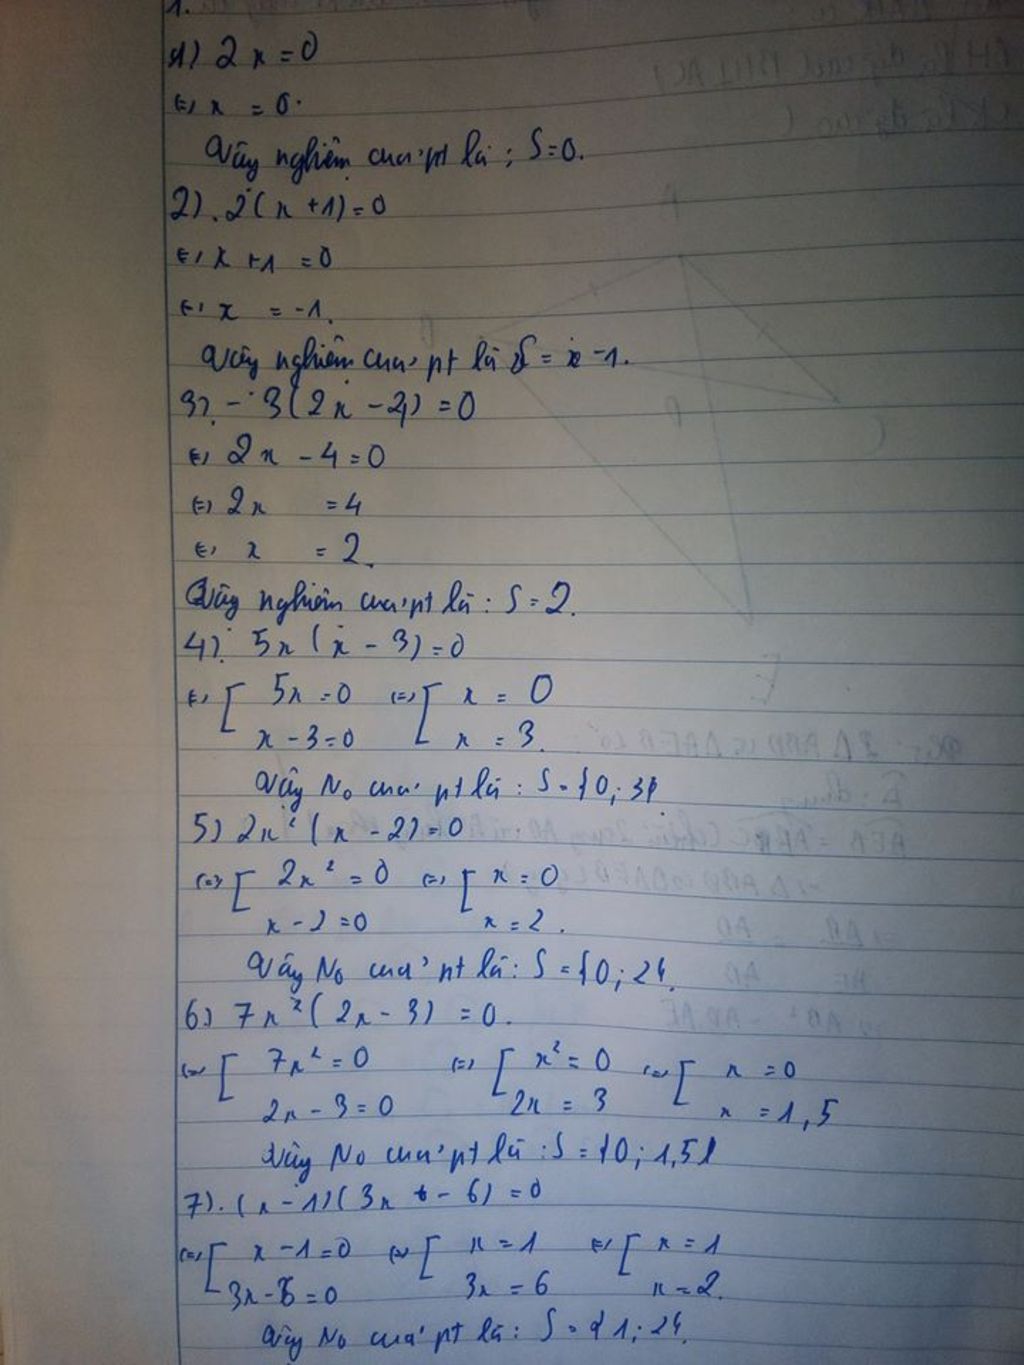 1.
1) 2x = 0
(=) x = 0.
Vậy nghiệm của pt là: S=0.
2). 2(x+1)=0
(=) x+1 = 0
(=) x = -1.
Vậy nghiệm của pt là S = -1.
3). -3(2x-4) = 0
(=) 2x - 4 = 0
(=) 2x = 4
(=) x = 2.
Vậy nghiệm của pt là: S = 2.
4). 5x (x - 3) = 0
(=) [ 5x = 0 (=) [ x = 0
x - 3 = 0 x = 3.
Vậy No của pt là: S = {0; 3}
5) 2x² (x - 2) = 0
(=) [ 2x² = 0 (=) [ x = 0
x - 2 = 0 x = 2.
Vậy No của pt là: S = {0; 2}.
6) 7x² (2x - 3) = 0.
(=) [ 7x² = 0 (=) [ x² = 0 (=) [ x = 0
2x - 3 = 0 2x = 3 x = 1,5
Vậy No của pt là: S = {0; 1,5}
7). (x - 1)(3x - 6) = 0
(=) [ x - 1 = 0 (=) [ x = 1 (=) [ x = 1
3x - 6 = 0 3x = 6 x = 2.
Vậy No của pt là: S = {1; 2}.